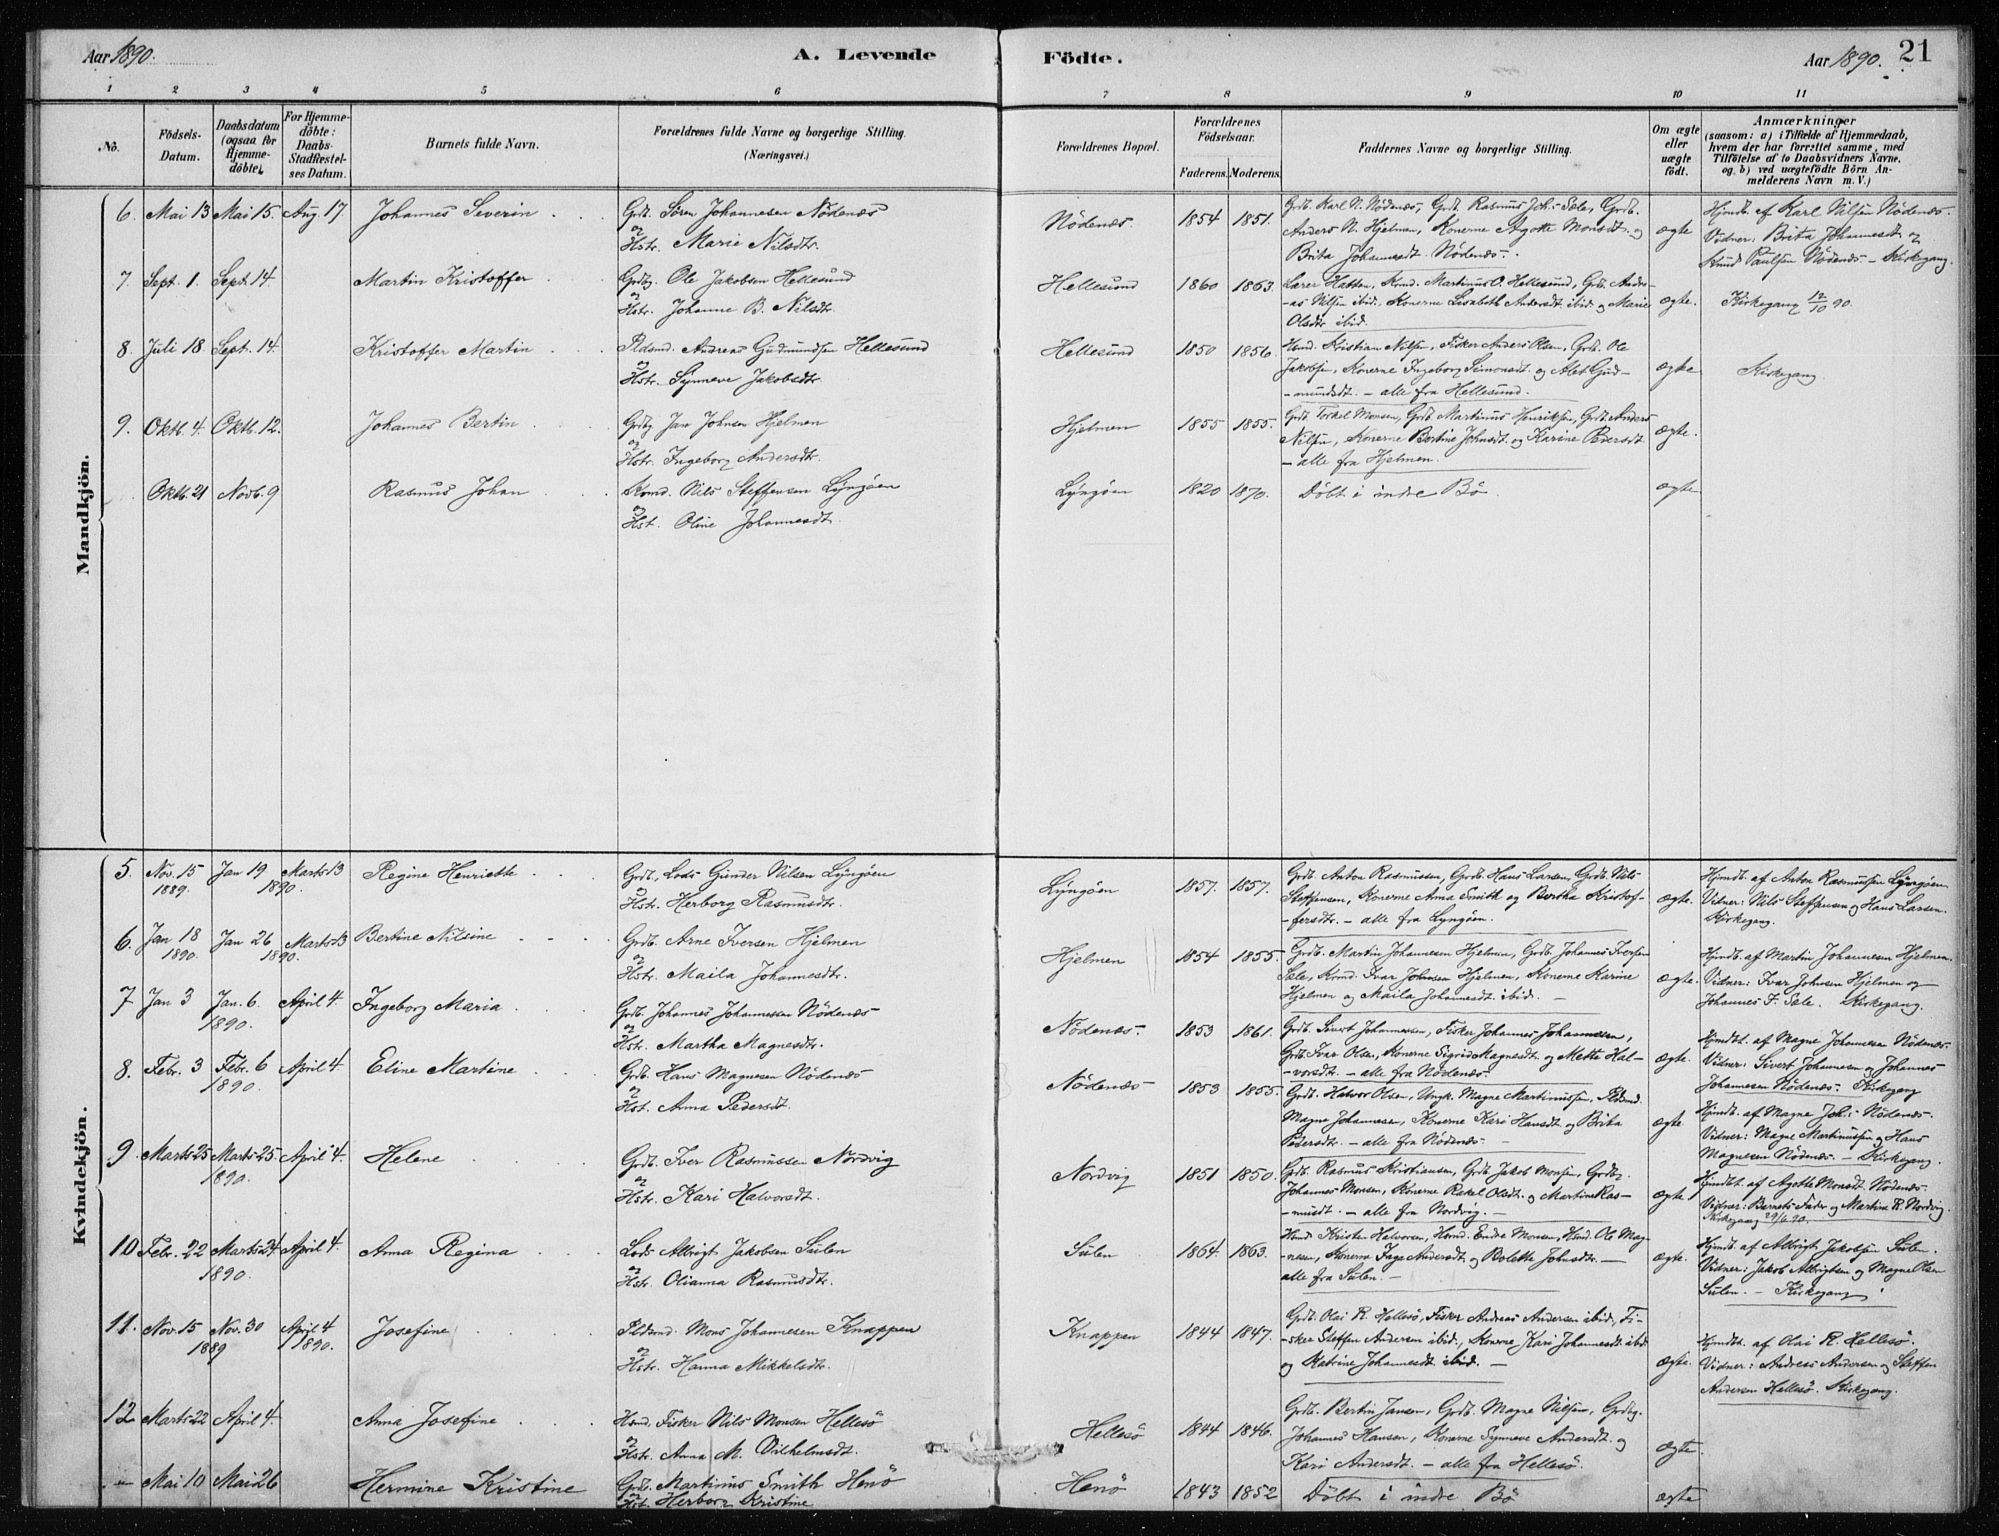 Aar 1890.
A. Levende Födte.
Aar 1890.
21
1 2 3 4 5 6 7 8 9 10 11
No.
Födsels-
Datum.
Daabsdatum
(ogsaa for
Hjemme-
döbte).
For Hjemme-
döbte:
Daabs-
Stadfæstel-
ses Datum.
Barnets fulde Navn.
Forældrenes fulde Navne og borgerlige Stilling.
(Næringsvei.)
Forældrenes Bopæl.
Forældrenes
Födselsaar.
Faderens. Moderens.
Faddernes Navne og borgerlige Stilling.
Om ægte
eller
uægte
födt.
Anmærkninger
(saasom: a) i Tilfælde af Hjemmedaab,
hvem der har forrettet samme, med
Tilföielse af to Daabsvidners Navne.
og. b) ved uægtefödte Börn An-
melderens Navn m. V.)
Mandkjön.
6. Mai 13 Mai 15. Aug. 17 Johannes Severin
Grdb. Sören Johannesen Nödenæs
og
Hstr. Marie Nilsdtr.
Nödenæs 1854 1851.
Grdb. Karl N. Nödenæs, Grdb. Rasmus Joh.s. Sæle, Grdb.
Anders N. Hjelmen, Konerne Agotte Monsdt. og
Brita Johannesdt. Nödenæs.
ægte
Hjmdb. af Karl Nilsen Nödenæs.
Vidner: Brita Johannesdt og
Knud Paulsen Nödenæs – Kirkegang.
7. Sept. 1. Sept. 14 Martin Kristoffer
Grdbg. Ole Jakobsen Hellesund
og
Hstr. Johanne B. Nilsdt.
Hellesund 1860 1863.
Lærer Hatten, Kmd. Martinus O. Hellesund, Grb. Andre-
as Nilsen ibid. Konerne Lisabeth Andersdt ibid. og Marie
Olsdtr ibid.
ægte.
Kirkegang 12/10 90.
8. Juli 18 Sept. 14. Kristoffer Martin
Pldsmd. Andreas Gudmundsen Hellesund
og
Hstr. Synneve Jakobsdtr.
Hellesund 1850 1856.
Hsmd. Kristian Nilsen, Fisker Anders Olsen, Grb. Ole
Jakobsen, Konerne Ingeborg Simonsdt. og Alet Gud-
-mundsdt. – alle fra Hellesund.
ægte
Kirkegang.
9. Oktb. 4. Oktb. 12. Johannes Bertin
Grdbg. Jan Johnsen Hjelmen
og
Hstr. Ingeborg Andersdtr.
Hjelmen 1855 1855.
Grdb. Torkel Monsen, Grdb. Martinus Henriksen, Grdb. Anders
Nilsen, Konerne Bertine Johnsdt. og Karine Pedersdt
– alle fra Hjelmen.
ægte.
Oktb. 21 Novb. 9 Rasmus Johan
Kmd. Nils Steffensen Lyngöen
og
Hst. Oline Johannesdt.
Lyngöen 1820 1870. Döbt i indre Bö. ægte
Kvindekjön.
5. Nov. 15 Jan 19 Marts 13 Regine Henriette
1889. 1890.
Grdb., Lods Gunder Nilsen Lyngöen
og
Hstr. Herborg Rasmusdtr.
Lyngöen 1857. 1857.
Grdb. Anton Rasmussen, Grdb. Hans Larsen, Grdb. Nils
Steffensen, Konerne Anna Smith og Bertha Kristof-
fersdtr. – alle fra Lyngöen.
ægte.
Hjmdb. af Anton Rasmussen Lyngöen
Vidner: Nils Steffensen og Hans Larsen.
Kirkegang.
6. Jan 18 Jan 26 Marts 13 Bertine Nilsine
1890. 1890.
Grdb. Arne Iversen Hjelmen
og
Hstr. Maila Johannesdtr.
Hjelmen 1854 1855.
Grdb. Martin Johannesen Hjelmen, Grdb. Johannes Iversen
Sæle, Kmd. Ivar Johnsen Hjelmen, Konerne Karine
Hjelmen og Maila Johannesdt. ibid. –
ægte.
Hjmdb. af Martin Johannesen Hjelmen.
Vidner: Ivar Johnsen Hjelmen og
Johannes I. Sæle. Kirkegang.
7 Jan 3 Jan. 6. April 4. Ingeborg Maria
1890.
Grdb. Johannes Johannessen Nödenæs
og
Hst. Martha Magnesdtr.
Nödenæs. 1853 1861.
Grdb. Sivert Johannessen, Fisker Johannes Johannesen,
Grdb. Ivar Olsen, Konerne Sigrid Magnesdt og Mette Hal-
-vorsdt. – alle fra Nödenæs.
ægte.
Hjmdt. af Magne Johannesen Nödenæs.
Vidner: Sivert Johannesen og Johannes
Johannesen Nödenæs. Kirkegang
8. Febr. 3 Febr. 6 April 4. Eline Martine
1890.
Grdb. Hans Magnesen Nödenæs
og
Hst. Anna Pedersdt.
Nödenæs 1853 1855.
Grdb. Halvor Olsen, Ungk. Magne Martinussen, Pldsmd.
Magne Johannesen, Konerne Kari Hansdt og Brita
Pedersdt. – alle fra Nödenæs. –
ægte
Hjmdt. af Magne Joh.s. Nödenæs.
Vidner: Magne Martinussen og Hans
Magnesen Nödenæs. – Kirkegang.
9 Marts 25 Marts 25. April 4. Helene
1890.
Grdb. Iver Rasmussen Nordvig
og
Hst. Kari Halvorsdt.
Nordvig 1851 1850.
Grdb. Rasmus Kristiansen, Grdb. Jakob Monsen, Grdbg.
Johannes Monsen, Konerne Rakel Olsdt. og Martine Ras-
-musdt. – alle fra Nordvig. –
ægte
Hjmdt. af Agotte Monsdt Nödenæs.
Vidner: Barnets Fader og Martine R. Nordvig.
Kirkegang 29/6 90.
10 Febr. 22 Marts 24 April 4. Anna Regina
1890.
Lods Albrigt Jakobsen Sulen
og
Hst. Olianna Rasmusdtr.
Sulen 1864. 1863.
Hsmd. Kristen Halvorsen, Hsmd. Endre Monsen, Hsmd. Ole Mag-
nesen, Konerne Inge Andersdt og Bolette Johnsdtr. –
alle fra Sulen. –
ægte.
Hjmdt. af Albrigt Jakobsen Sulen.
Vidner: Jakob Albrigtsen og Magne Olsen
Sulen. – Kirkegang
11. Nov. 15 Nov. 30 April 4 Josefine
1889 1890.
Pldsmd. Mons Johannesen Knappen
og
Hst. Hanna Mikkelsdt.
Knappen 1844 1847.
Grdt. Olai R. Hellesö, Fisker Andreas Andersen ibid, Fi-
-sker Steffen Andersen ibid., Konerne Kari Johannesdt ibid
og Katrine Johannesdt. ibid. –
ægte.
Hjmdt. af Olai R. Hellesö.
Vidner: Andreas Andersen og Steffen
Andersen Hellesö. Kirkegang.
12 Marts 22 April 4. Anna Josefine
Hsmd. Fisker Nils Monsen Hellesö
og
Hst. Anna M. Vilhelmsdt.
Hellesö 1844 1846.
Grdb. Bertin Jansen, Grdb. Magne Nilsen, Grdbg.
Johannes Hansen, Konerne Synneve Andersdt. og
Kari Andersdt. – alle fra Hellesö.
ægte.
– Mai 10 Mai 26 Hermine Kristine
Grdb. Martinus Smith Henö
og
Hst. Herborg Kristine
Henö 1843 1852 Döbt i indre Bö ægte